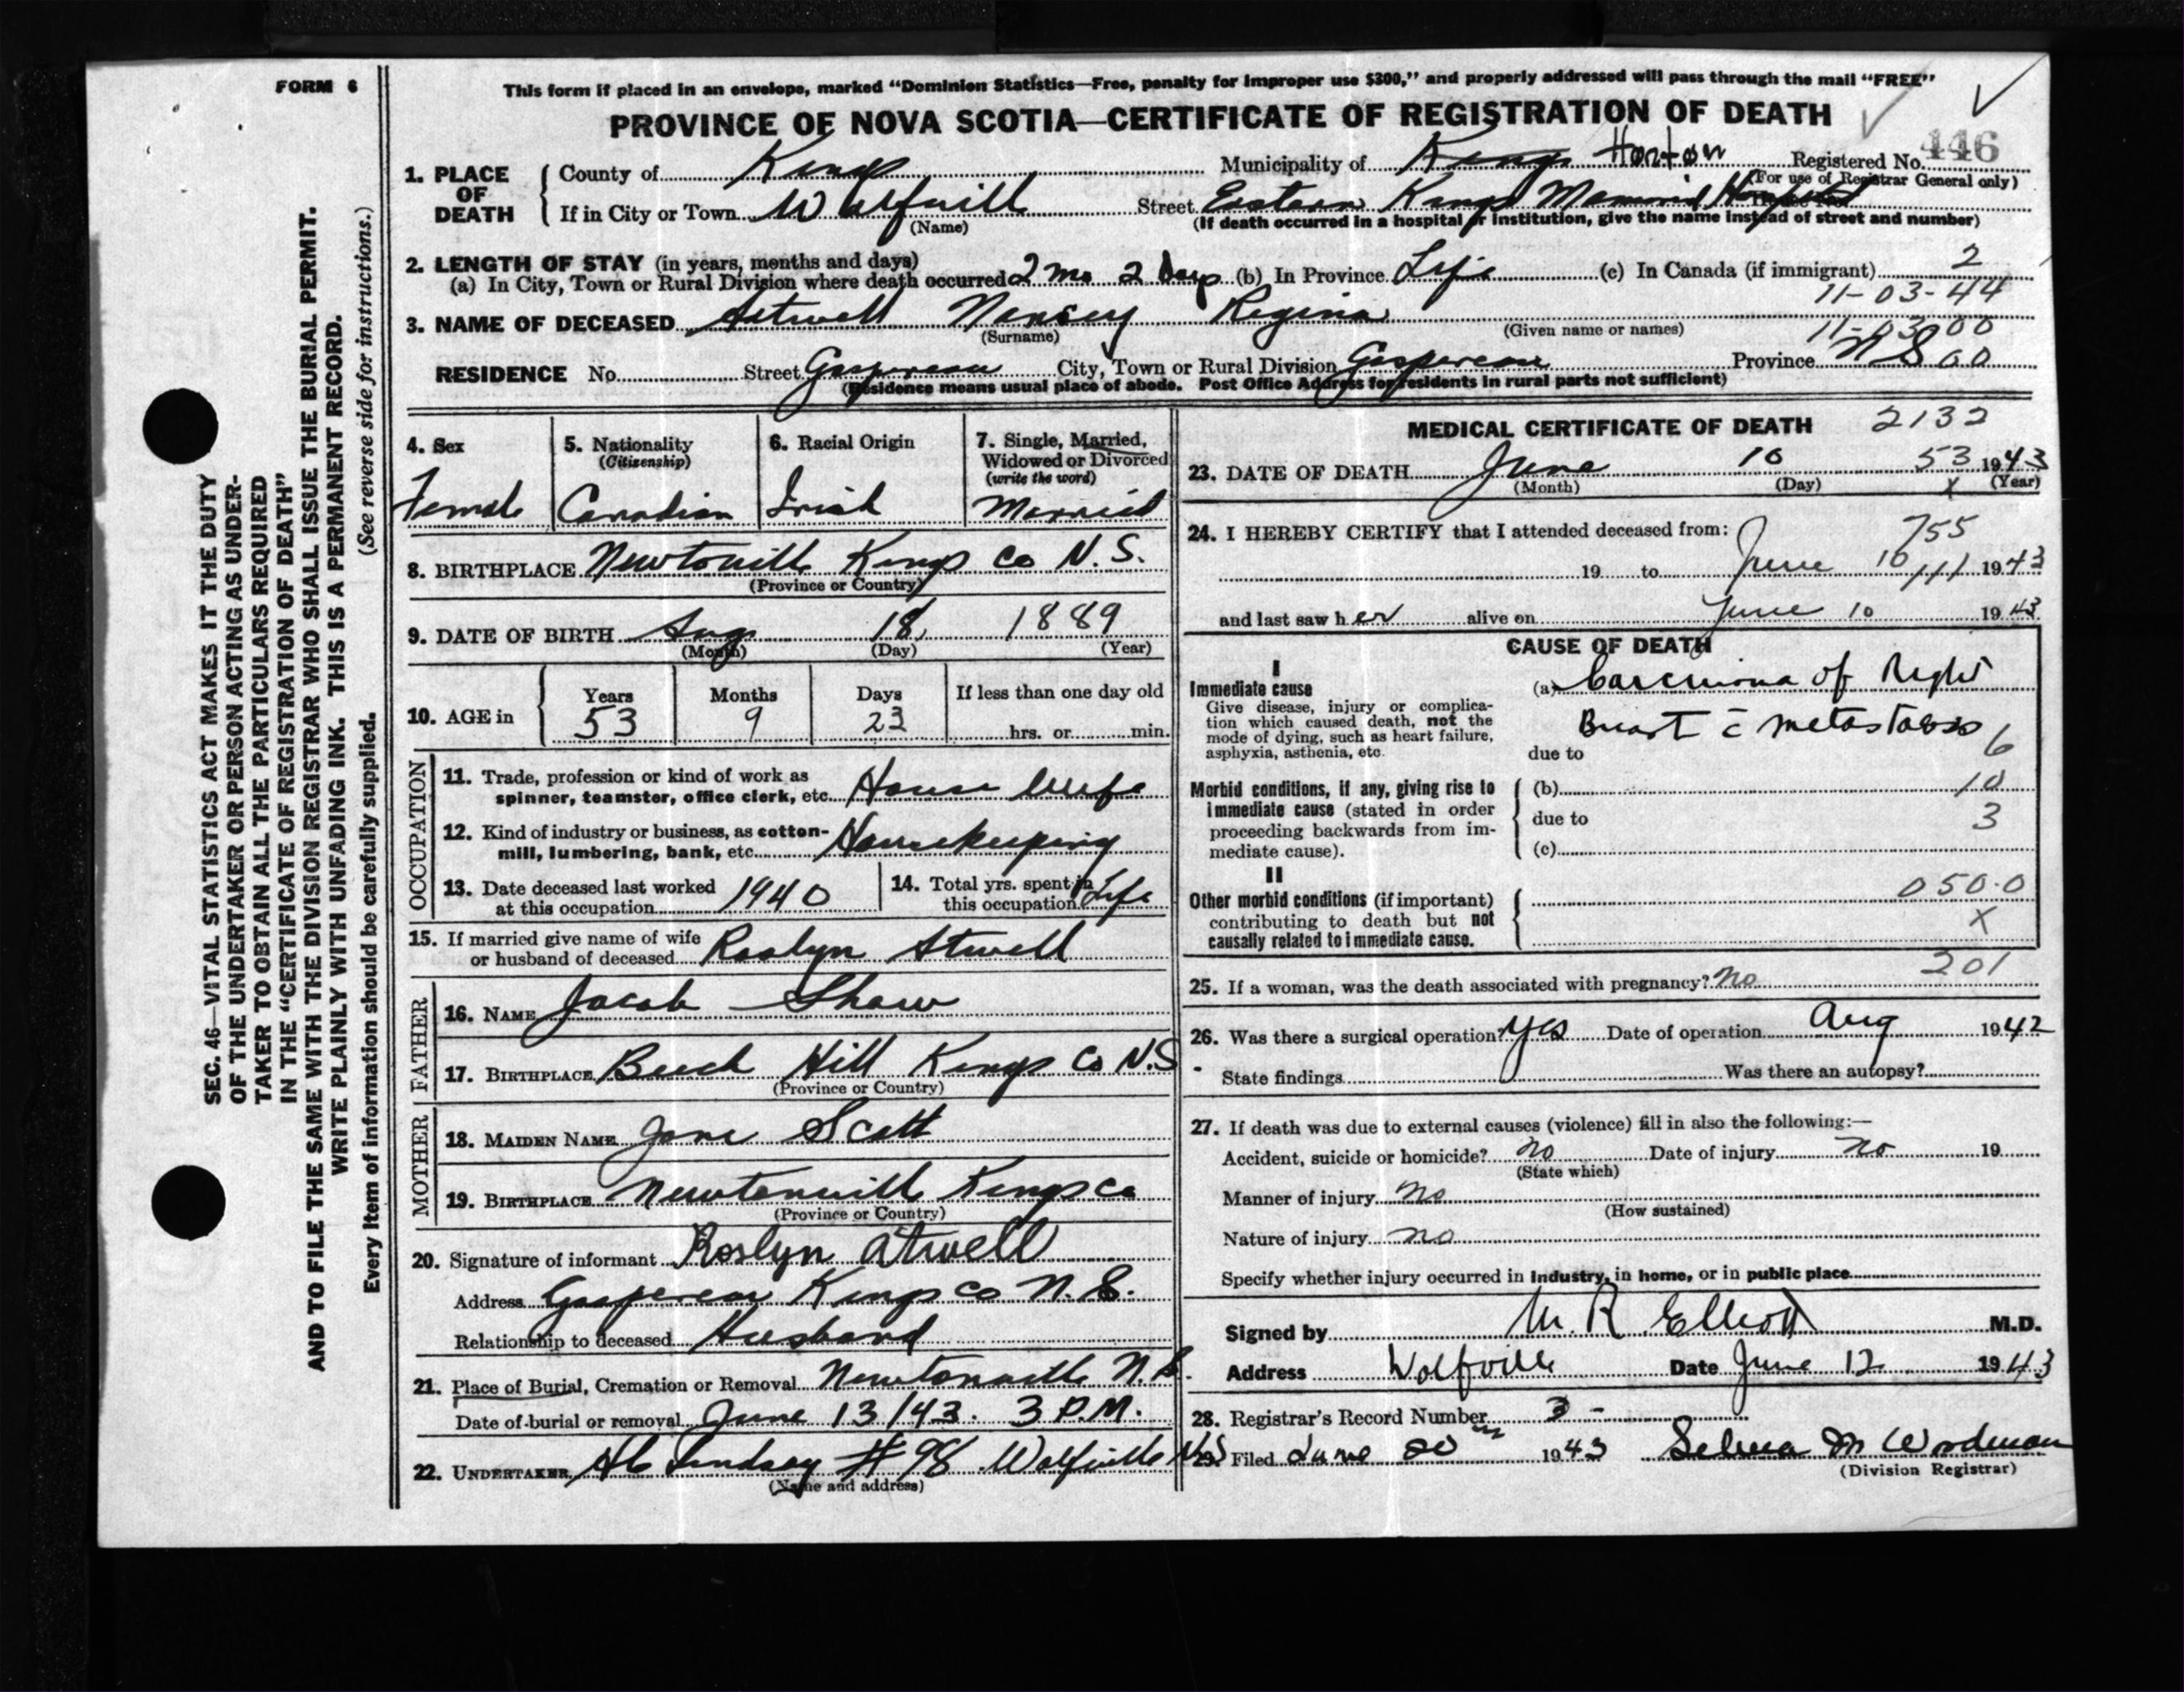 FORM 6
This form if placed in an envelope, marked "Dominion Statistics—Free, penalty for improper use $300," and properly addressed will pass through the mail "FREE"
PROVINCE OF NOVA SCOTIA—CERTIFICATE OF REGISTRATION OF DEATH
446
1. PLACE OF DEATH
County of Kings Municipality of Kings Horton Registered No.
(For use of Registrar General only)
If in City or Town Wolfville Street Eastern Kings Memorial Hospital
(Name) (If death occurred in a hospital or institution, give the name instead of street and number)
2. LENGTH OF STAY (in years, months and days)
(a) In City, Town or Rural Division where death occurred 2 mo 2 Days (b) In Province Life (c) In Canada (if immigrant) 2
11-03-44
3. NAME OF DECEASED Atwell Nancy Regina
(Surname) (Given name or names) 11-03-00
RESIDENCE No. Street Gaspereau City, Town or Rural Division Gaspereau Province N S 00
(Residence means usual place of abode. Post Office Address for residents in rural parts not sufficient)
4. Sex 5. Nationality (Citizenship) 6. Racial Origin 7. Single, Married, Widowed or Divorced (write the word)
Female Canadian Irish Married
8. BIRTHPLACE Newtonville Kings Co N.S.
(Province or Country)
9. DATE OF BIRTH Aug 18, 1889
(Month) (Day) (Year)
10. AGE in Years Months Days If less than one day old
53 9 23 hrs. or min.
OCCUPATION
11. Trade, profession or kind of work as spinner, teamster, office clerk, etc. House Wife
12. Kind of industry or business, as cotton-mill, lumbering, bank, etc. Housekeeping
13. Date deceased last worked at this occupation 1940
14. Total yrs. spent in this occupation Life
15. If married give name of wife or husband of deceased Roslyn Atwell
FATHER
16. NAME Jacob Shaw
17. BIRTHPLACE Beech Hill Kings Co N.S
(Province or Country)
MOTHER
18. MAIDEN NAME Jane Scott
19. BIRTHPLACE Newtonville Kings Co
(Province or Country)
20. Signature of informant Roslyn Atwell
Address Gaspereau Kings Co N.S.
Relationship to deceased Husband
21. Place of Burial, Cremation or Removal Newtonville N.S.
Date of burial or removal June 13/43. 3 P.M.
22. UNDERTAKER Lindsay #98 Wolfville N.S
(Name and address)
MEDICAL CERTIFICATE OF DEATH 2132
23. DATE OF DEATH June 10 53 1943
(Month) (Day) x (Year)
24. I HEREBY CERTIFY that I attended deceased from: 755
19 to June 10 /11/ 1943
and last saw her alive on June 10 1943
CAUSE OF DEATH
I
Immediate cause
Give disease, injury or complication which caused death, not the mode of dying, such as heart failure, asphyxia, asthenia, etc.
(a) Carcinoma of Right
Breast c̄ metastases
due to 6
Morbid conditions, if any, giving rise to immediate cause (stated in order proceeding backwards from immediate cause).
(b) 10
due to 3
(c)
II
Other morbid conditions (if important) contributing to death but not causally related to immediate cause.
050.0
X
201
25. If a woman, was the death associated with pregnancy? no
26. Was there a surgical operation? yes Date of operation Aug 1942
State findings Was there an autopsy?
27. If death was due to external causes (violence) fill in also the following:—
Accident, suicide or homicide? no Date of injury no 19
(State which)
Manner of injury no
(How sustained)
Nature of injury no
Specify whether injury occurred in industry, in home, or in public place
Signed by M. R. Elliott M.D.
Address Wolfville Date June 12 1943
28. Registrar's Record Number 3 -
29. Filed June 1943 Selena M Woodman
(Division Registrar)
SEC. 46—VITAL STATISTICS ACT MAKES IT THE DUTY
OF THE UNDERTAKER OR PERSON ACTING AS UNDER-
TAKER TO OBTAIN ALL THE PARTICULARS REQUIRED
IN THE "CERTIFICATE OF REGISTRATION OF DEATH"
AND TO FILE THE SAME WITH THE DIVISION REGISTRAR WHO SHALL ISSUE THE BURIAL PERMIT.
WRITE PLAINLY WITH UNFADING INK. THIS IS A PERMANENT RECORD.
Every item of information should be carefully supplied. (See reverse side for instructions.)